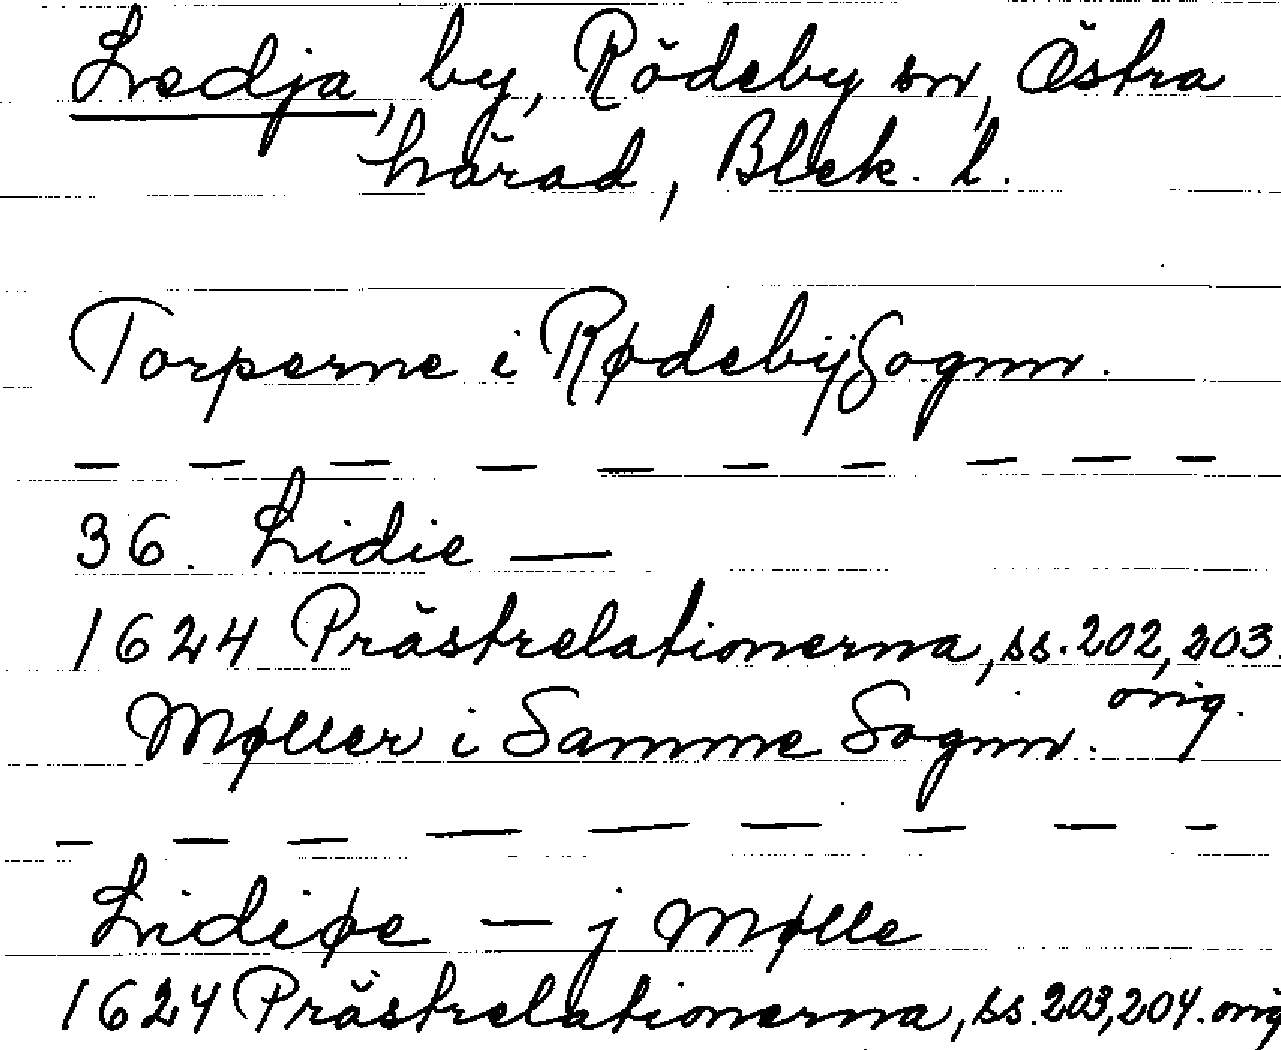 Ledja, by, Rödeby sn, Östra
härad, Blek. l.
Torperne i Rødebÿ Sognn.
— — — — — — — — — —
36. Lidie —
1624 Prästrelationerna, ss. 202, 203.
orig.
Møller i Samme Sognn.
— — — — — — — — —
Lidiøe — j Mølle
1624 Prästrelationerna, ss. 203, 204. orig